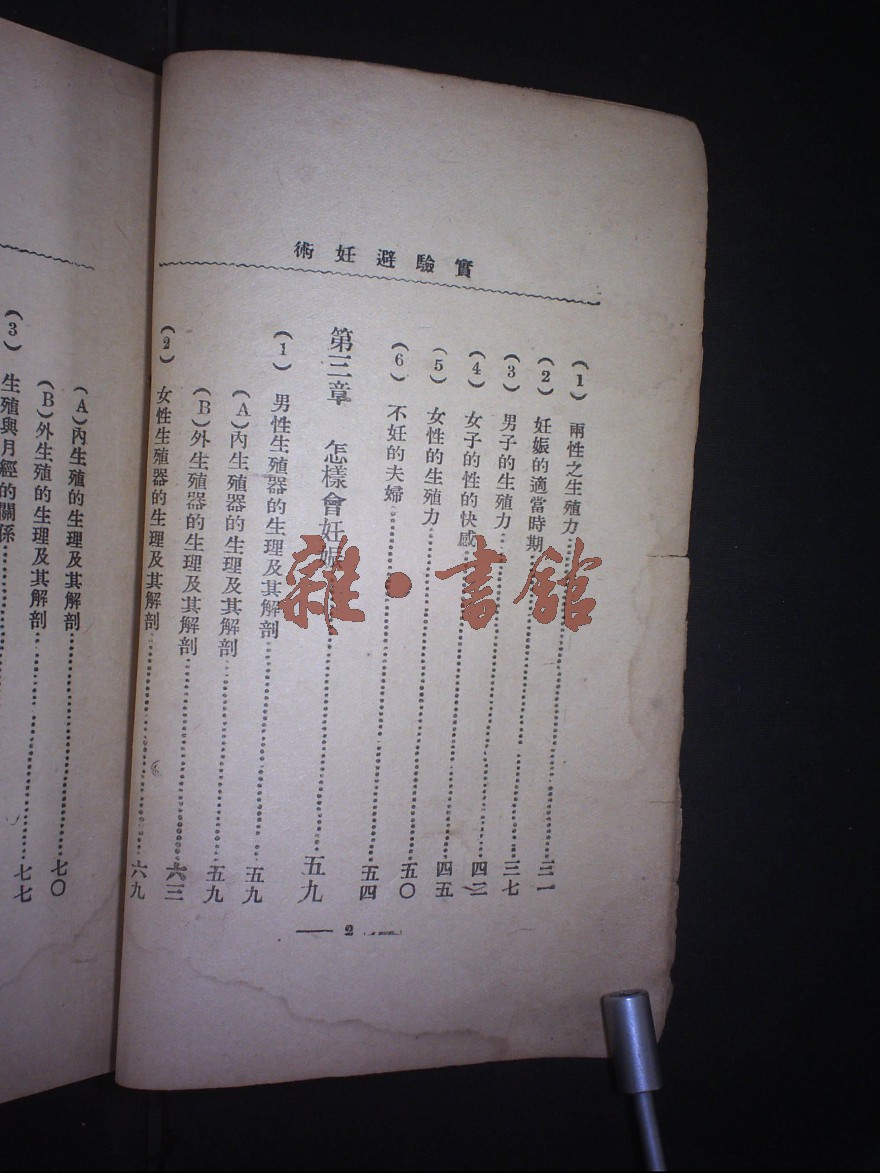 實驗避妊術
(1) 兩性之生殖力……三一
(2) 妊娠的適當時期……三七
(3) 男子的生殖力……四二
(4) 女子的性的快感……四五
(5) 女性的生殖力……五〇
(6) 不妊的夫婦……五四
第三章 怎樣會妊娠……五九
(1) 男性生殖器的生理及其解剖……五九
(A)內生殖器的生理及其解剖……五九
(B)外生殖器的生理及其解剖……六三
(2) 女性生殖器的生理及其解剖……六九
2
(A)內生殖的生理及其解剖……七〇
(B)外生殖的生理及其解剖……七七
(3) 生殖與月經的關係……
雜·書館